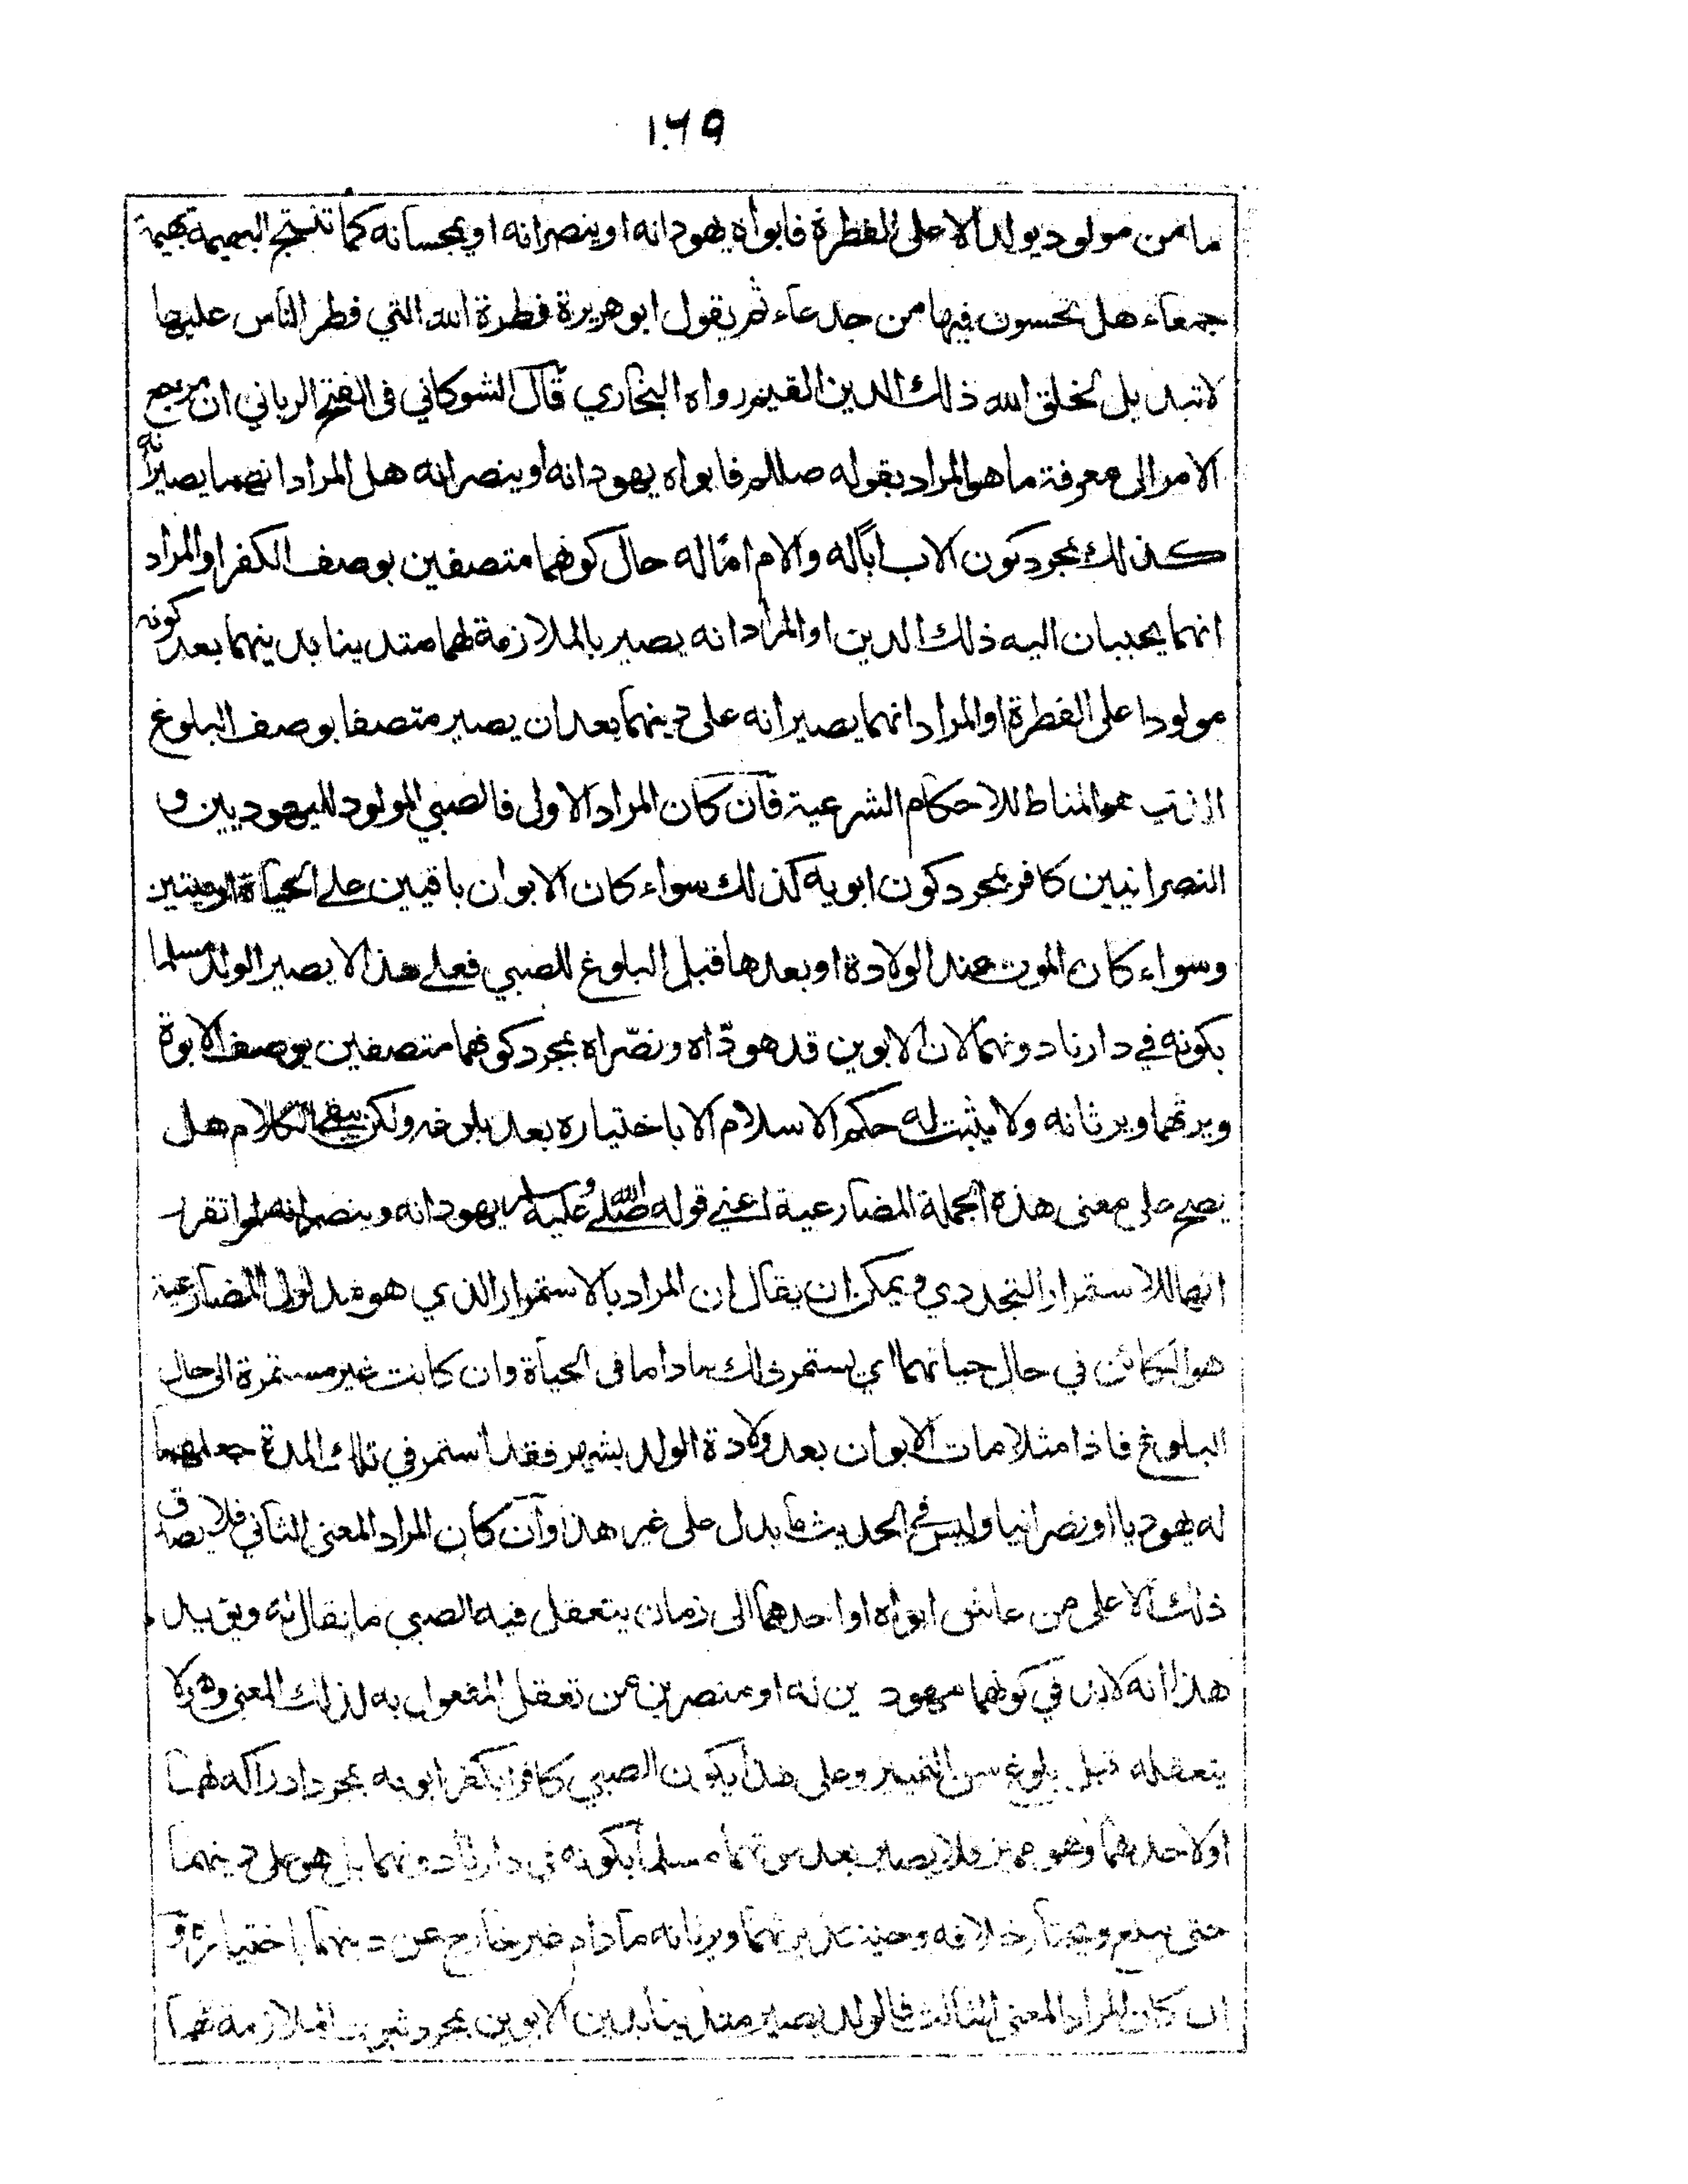 ١٠٦٩
ما من مولود يولد الا على الفطرة فابواه يهودانه او ينصرانه او يمجسانه كما تنتج البهيمة بهيمة
جمعاء هل تحسون فيها من جدعاء ثم يقول ابو هريرة فطرة الله التي فطر الناس عليها
لا تبديل لخلق الله ذلك الدين القيم رواه البخاري قال الشوكاني في الفتح الرباني ان مرجع
الامر الى معرفة ما هو المراد بقوله صللم فابواه يهودانه او ينصرانه هل المراد انهما يصيرانه
كذلك بمجرد كون الاب اباً له والام امّا له حال كونهما متصفين بوصف الكفر او المراد
انهما يحببان اليه ذلك الدين او المراد انه يصير بالملازمة لهما متدينا بدينهما بعد كونه
مولودا على الفطرة او المراد انهما يصيرانه على دينهما بعد ان يصير متصفا بوصف البلوغ
الذي هو المناط للاحكام الشرعية فان كان المراد الاول فالصبي المولود لليهوديين و
النصرانيين كافر بمجرد كون ابويه كذلك سواء كان الابوان باقيين على الحياة او ميتين
وسواء كان الموت عند الولادة او بعدها قبل البلوغ للصبي فعلى هذا لا يصير الولد مسلما
بكونه في دارنا دونهما لان الابوين قد هوّداه ونصّراه بمجرد كونهما متصفين بوصف الابوة
ويرثهما ويرثانه ولا يثبت له حكم الاسلام الا باختياره بعد بلوغه ولكن يبقى الكلام هل
يصح على معنى هذه الجملة المضارعية اعني قوله صلى الله عليه وسلم يهودانه وينصرانه لما تقرر
انها للاستمرار التجددي ويمكن ان يقال ان المراد بالاستمرار الذي هو مدلول المضارعية
هو الكائن في حال حياتهما اي يستمر ذلك ما داما في الحياة وان كانت غير مستمرة الى حال
البلوغ فاذا مثلا مات الابوان بعد ولادة الولد بشهر فقد استمر في تلك المدة جعلهما
له يهوديا او نصرانيا وليس في الحديث ما يدل على غير هذا وان كان المراد المعنى الثاني فلا يصدق
ذلك الا على من عاش ابواه او احدهما الى زمان يتعقل فيه الصبي ما يقال له ويؤيد
هذا انه لا بد في كونهما مهودين له او منصرين من تعقل المفعول به لذلك المعنى وهو لا
يتعقله قبل بلوغ سن التمييز وعلى هذا يكون الصبي كافرا بكفر ابويه بمجرد ادراكه لهما
او لاحدهما وهو مميز فلا يصير بعد موتهما مسلما بكونه في دارنا دونهما بل هو على دينهما
حتى يبلغ ويختار خلافه وحينئذ يرثهما ويرثانه ما دام غير خارج عن دينهما باختياره و
ان كان المراد المعنى الثالث فالولد يصير متدينا بدين الابوين بمجرد ثبوت الملازمة لهما